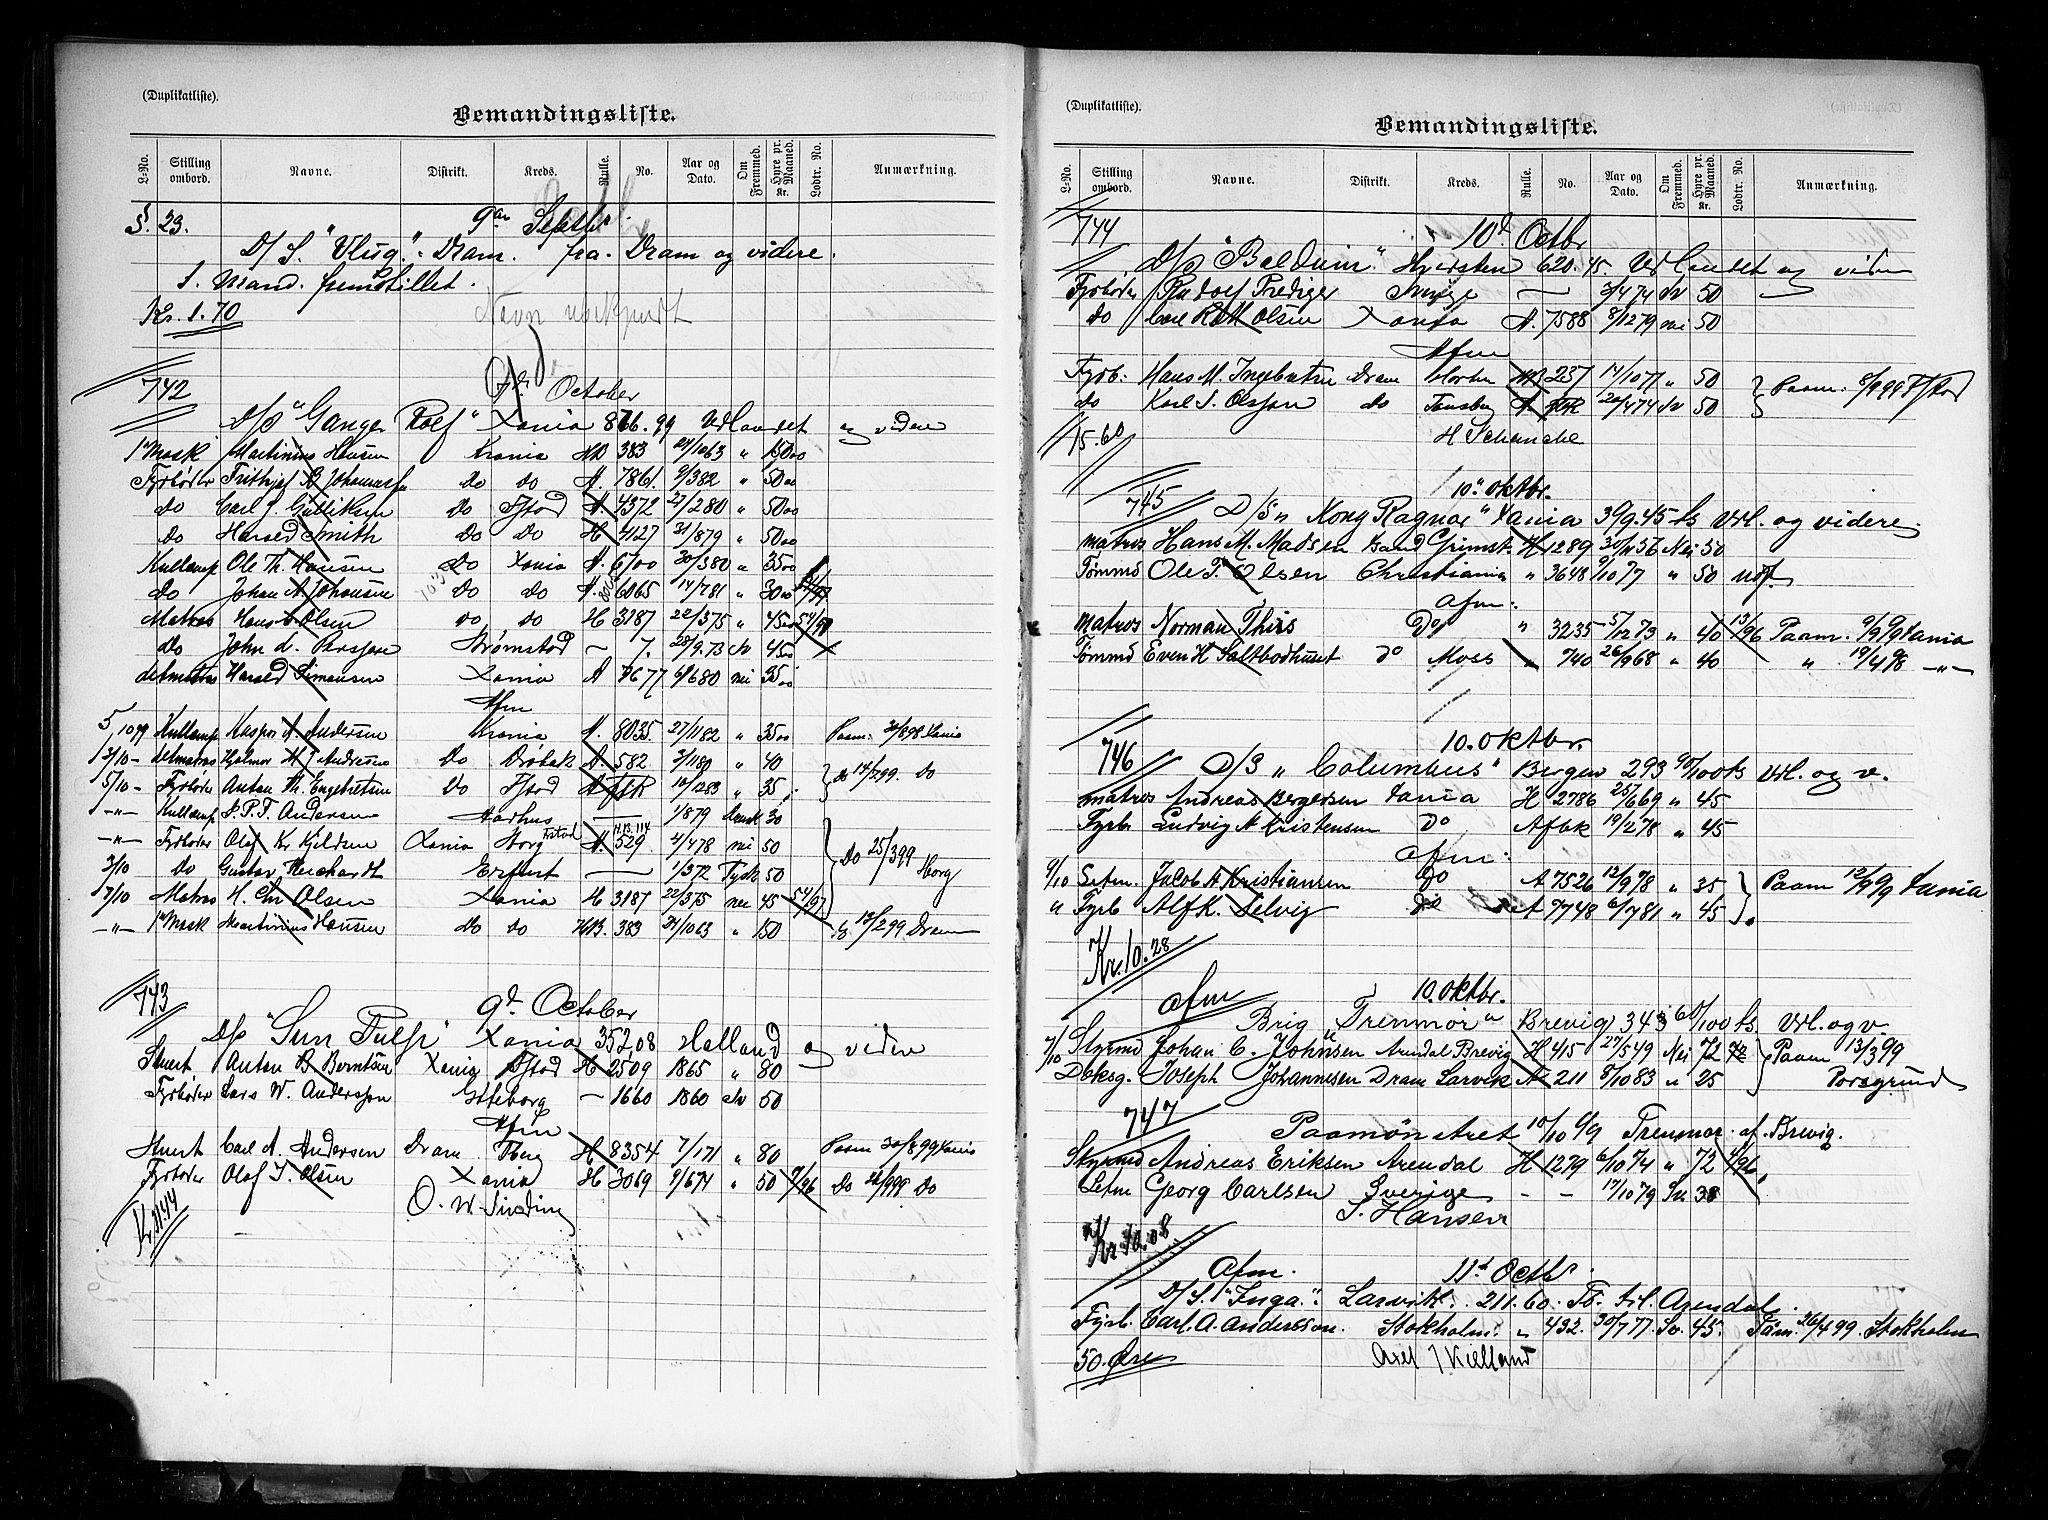 (Duplikatliste).
Bemandingsliste.
L-No. Stilling ombord. Navne. Distrikt. Kreds. Rulle. No. Aar og Dato. Om Fremmed. Hyre pr. Maaned. Kr. Lodtr. No. Anmærkning.
§. 23. 9de Septbr.
D/S. "Vlug". Dram. fra Dram og videre.
1. Mand. fremstillet.
Kr. 1.70
742 7de October
D/S "Ganger Rolf" Xania 866.99 Udlandet og videre
1 Mask Martinius Hansen Krania HB 383 24/10 63 " 150 00
Fyrbøder Frithjof Johannesen do do A. 7861. 9/3 82 " 50 00
do Carl J. Gulliksen do Fstad A. 4372 27/2 80 " 50 00
do Harald Smith do do H 4127 31/8 79 " 50 00
Kullemp Ole Th. Hansen do Xania A. 6100 30/3 80 " 35 00
do Johan A. Johansen do do A. 6065 14/7 81 " 30 00
Matros Hans C Olsen do do H 3187 22/3 75 " 45 00 54/97
do John A. Persson Strømstad — 7. 28/9.73 Sv 45 00
Letmatros Harald Simonsen Xania A 7677 6/6 80 nei 35 00
Afm
5/10 99 Kullemp Kaspar A. Andersen Krania A. 8035 27/11 82 " 35 00 Paam. 30/8 98 Xania
3/10 - Letmatros Hjalmar M J Andresen Do Drøbak A. 582 3/11 80 " 40
5/10 - Fyrbøder Anton M. Engebretsen Do Fstad A fbk 10/12 83 " 35 Do 17/7 99. Do
-"- Kullemp J. P. T. Andersen Aarhus — 1/8 79 dansk 30
-"- Fyrbøder Olaf Kr Kjeldsen Xania Borg Fstad A. 529 4/4 78 nei 50
3/10 Do Gustav Reichardt Erfurt — 1/3 72 Tysk 50 Do 25/3 99 Borg
7/10 Matros H. Chr Olsen Xania H 3187 22/3 75 nei 45 54/97
-"- 1 Mask Martinius Hansen Do Do HB. 383 24/10 63 " 150 Do 13/2 99 Dram
743 9d October
D/S "Sun Tulip" Xania 352,08 Halland og videre
Stuert Anton B Berntsen Xania Fstad H 2509 1865 " 80
Fyrbøder Lars W. Andersson Gøteborg — 1660 1860 Sv 50
Afm
Stuert Carl A. Andersen Dram Tbrg H 8354 7/1 71 " 80 Paam 30/8 99 Xania
Fyrbøder Olaf J. Olsen Xania H 3069 9/6 74 " 50 7/96 Do 26/9 98 Do
Kr. 11.44 O. W. Sinding
(Duplikatliste).
Bemandingsliste.
L-No. Stilling ombord. Navne. Distrikt. Kreds. Rulle. No. Aar og Dato. Om Fremmed. Hyre pr. Maaned. Kr. Lodtr. No. Anmærkning.
744 10d Octbr
D/S "Balduin" 620.45. Udlandet og videre
Fyrbøder Rudolf Prediger Sverige — 3/4 74 Sv 50
do Carl Olsen Xania A. 7588 8/12 79 nei 50
Afm
Fyrb. Hans M. Ingebretsen Dram Horten M 237 14/10 71 " 50
do Karl S. Olsson do Tønsberg A fbk 20/4 74 Sv 50
15.60 H Schanche
745 10de Oktbr.
D/S " Kong Ragnar " Xania 399.45 ts Udl. og videre.
Matros Hans M. Madsen Grimst. H 1289 30/11 56 Nei 50
Tømmd Ole T. Olsen Christiania " 3648 9/10 77 " 50 Udf.
Afm:
Matros Norman Thiis Do " 3235 5/12 73 " 40 13/96 Paam. 9/9 99 Xania
Tømmd Even H Saltbodhuset Do Moss " 740 26/9 68 " 40 " 19/4 98 -"-
746 10. Oktbr.
D/S " Columbus " Bergen 293 90/100 ts Udl. og v.
Matros Andreas Bergersen Xania H 2786 25/6 69 " 45
Fyrb Ludvig A Kristensen Do A fbk 19/2 78 " 45
Afm:
9/10 Letm. Jacob A Kristiansen Do A 7526 12/9 78 " 35 Paam 12/9 99 Xania
" Fyrb Alf K. Selvig Do A 7748 6/7 81 " 45
Kr. 10.28
Afm 10. Oktbr.
Brig " Trenmor " Brevig 343 60/100 ts. Udl. og v.
7/10 Styrmd Johan C. Johnsen Arendal Brevig H 415 27/5 49 Nei 72 72 Paam 13/3 99
Dæksg. Joseph Johannesen Dram Larvik A 211 8/10 83 " 25 Porsgrund
747
Paamønstret 10/10 99 Trenmor af Brevig.
Styrmd Andreas Eriksen Arendal H 1279 6/10 74 " 72 4/96.
Letm Georg Carlsen Sverige - - 17/10 79 Sv 38
S. Hansen
Kr. 10.08
Afm. 11te Octbr.
D/S. "Inga". Larvik. 211.60. Ts. til Arendal.
Fyrb. Carl. A. Andersson. Stokholm. " 432. 30/7 77. Sv. 45. Paam. 26/4 99. Stokholm
50. Øre Axel J Kielland